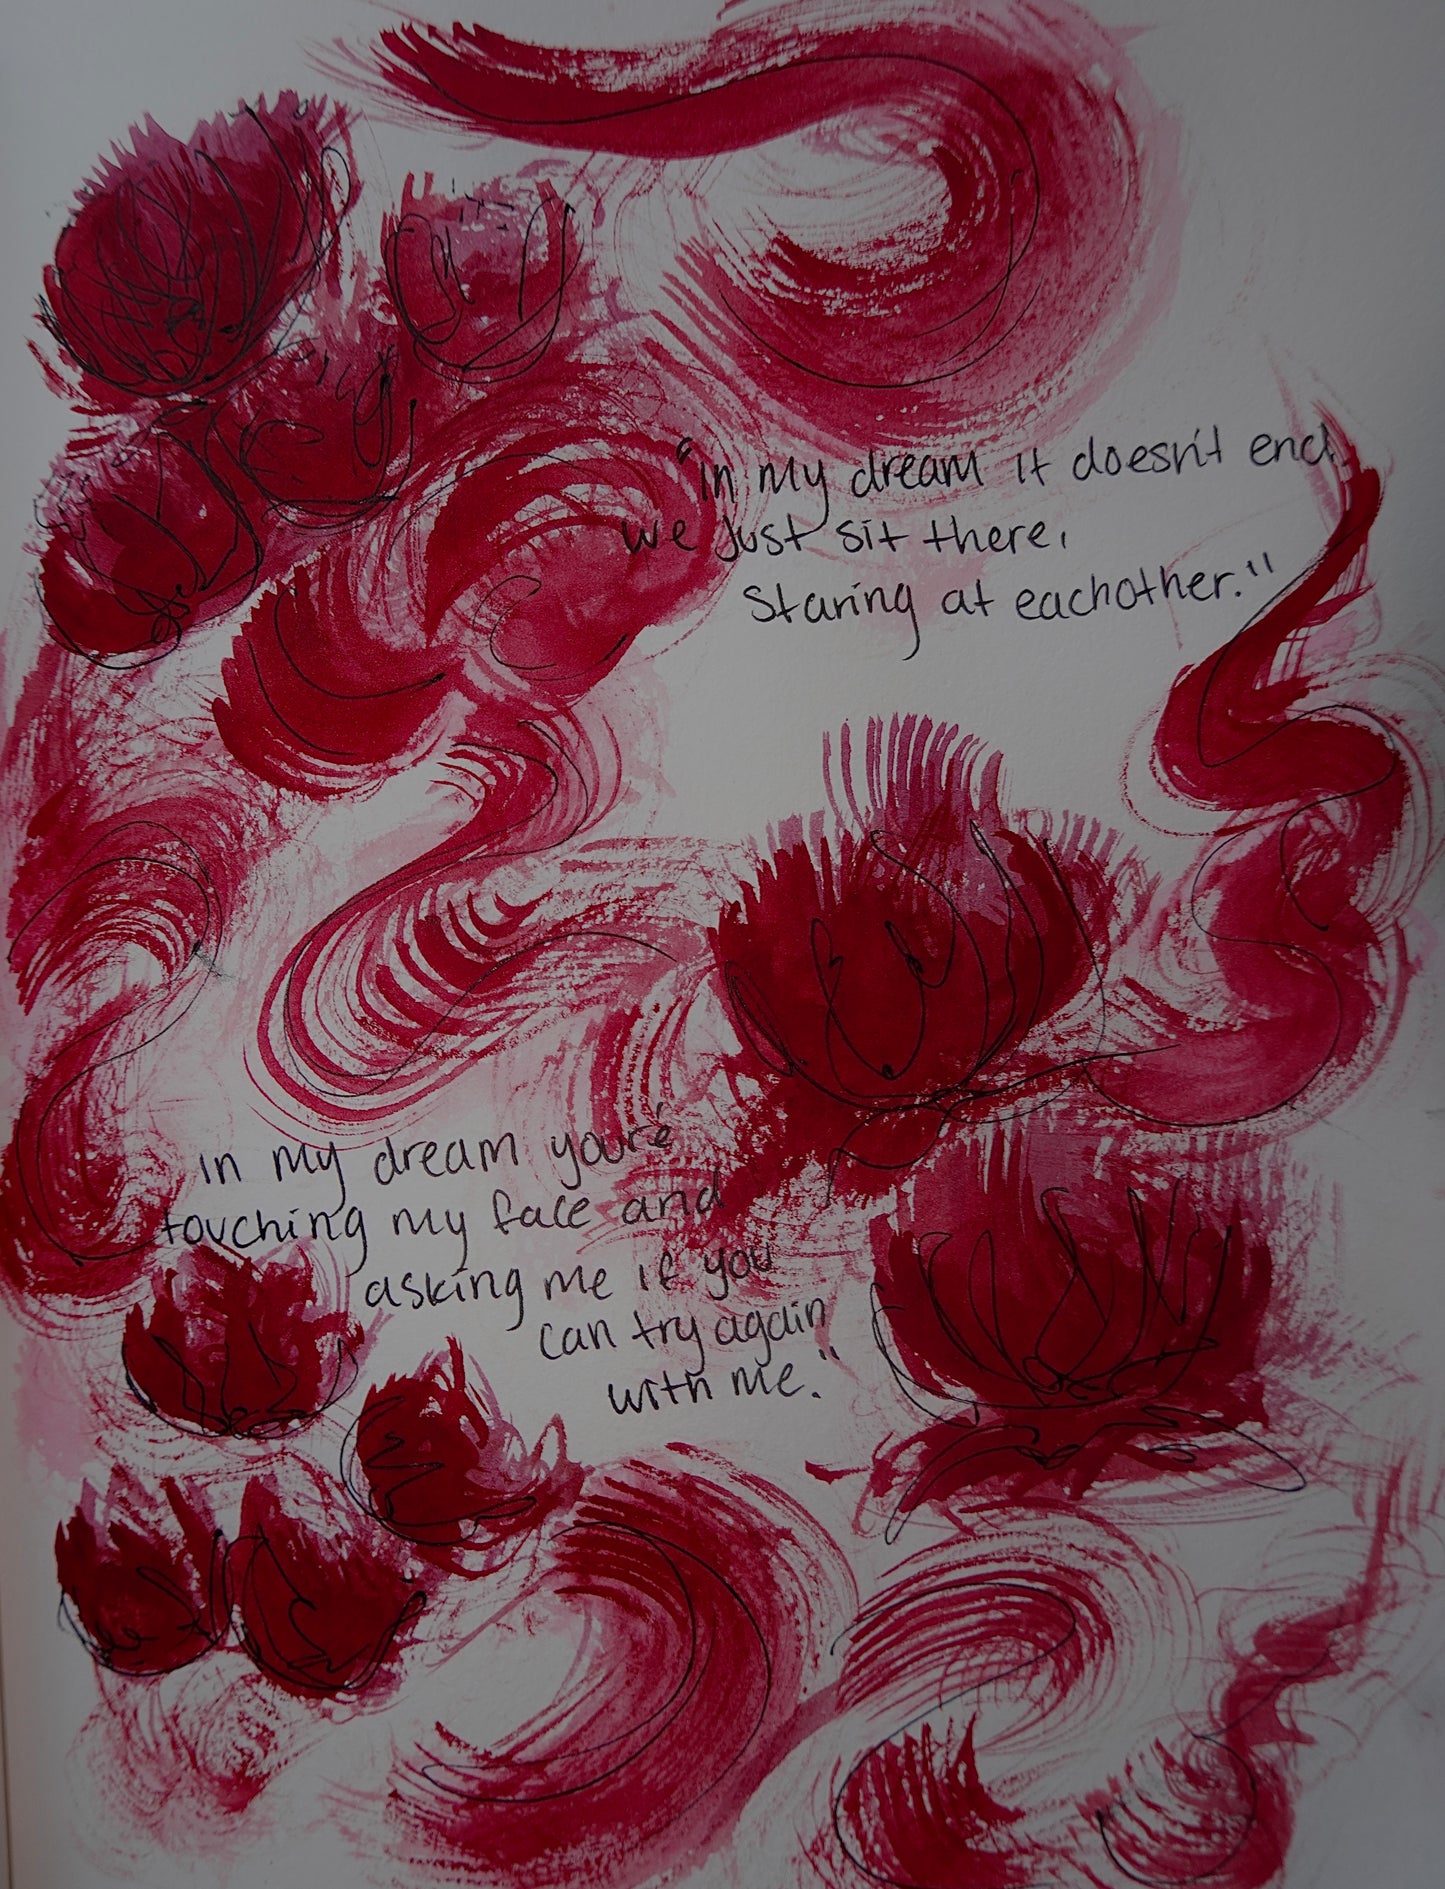 "in my dream it doesn't end
we just sit there,
Staring at eachother."
in my dream you're
touching my face and
asking me if you
can try again
with me."